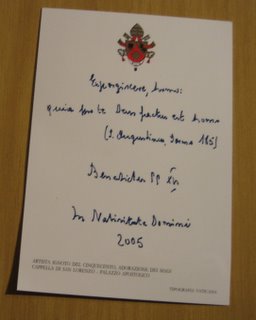 Expergiscere, homo:
quia pro te Deus factus est homo
(S. Augustinus, Sermo 185)
Benedictus PP XVI
In Nativitate Domini
2005
ARTISTA IGNOTO DEL CINQUECENTO, ADORAZIONE DEI MAGI
CAPPELLA DI SAN LORENZO - PALAZZO APOSTOLICO
TIPOGRAFIA VATICANA